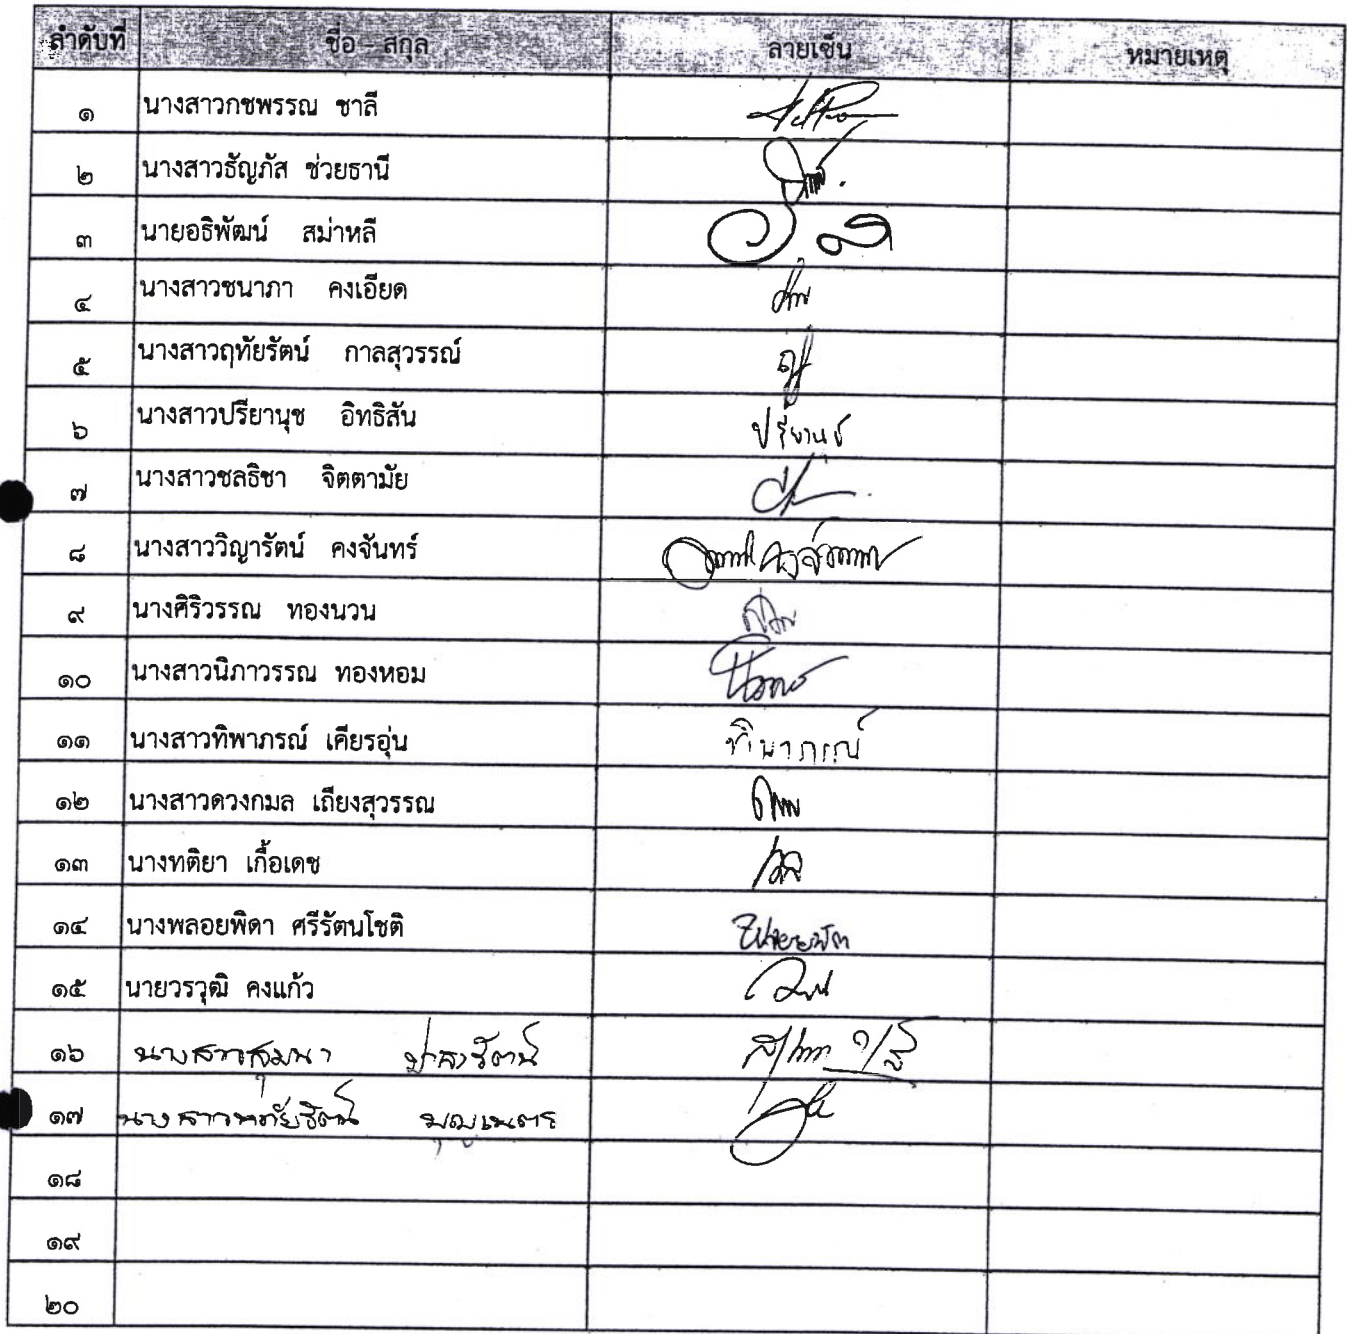 ลำดับที่ ชื่อ - สกุล ลายเซ็น หมายเหตุ
๑ นางสาวกชพรรณ ชาลี
๒ นางสาวธัญภัส ช่วยธานี
๓ นายอธิพัฒน์ สม่าหลี
๔ นางสาวชนาภา คงเอียด
๕ นางสาวฤทัยรัตน์ กาลสุวรรณ์
๖ นางสาวปรียานุช อิทธิสัน ปรียานุช
๗ นางสาวชลธิชา จิตตามัย
๘ นางสาววิญารัตน์ คงจันทร์
๙ นางศิริวรรณ ทองนวน
๑๐ นางสาวนิภาวรรณ ทองหอม
๑๑ นางสาวทิพาภรณ์ เคียรอุ่น ทิพาภรณ์
๑๒ นางสาวดวงกมล เถียงสุวรรณ
๑๓ นางทติยา เกื้อเดช
๑๔ นางพลอยพิดา ศรีรัตนโชติ
๑๕ นายวรวุฒิ คงแก้ว
๑๖ นางสาวสุมนา
๑๗ นางสาวหทัยรัตน์ บุญเนตร
๑๘
๑๙
๒๐